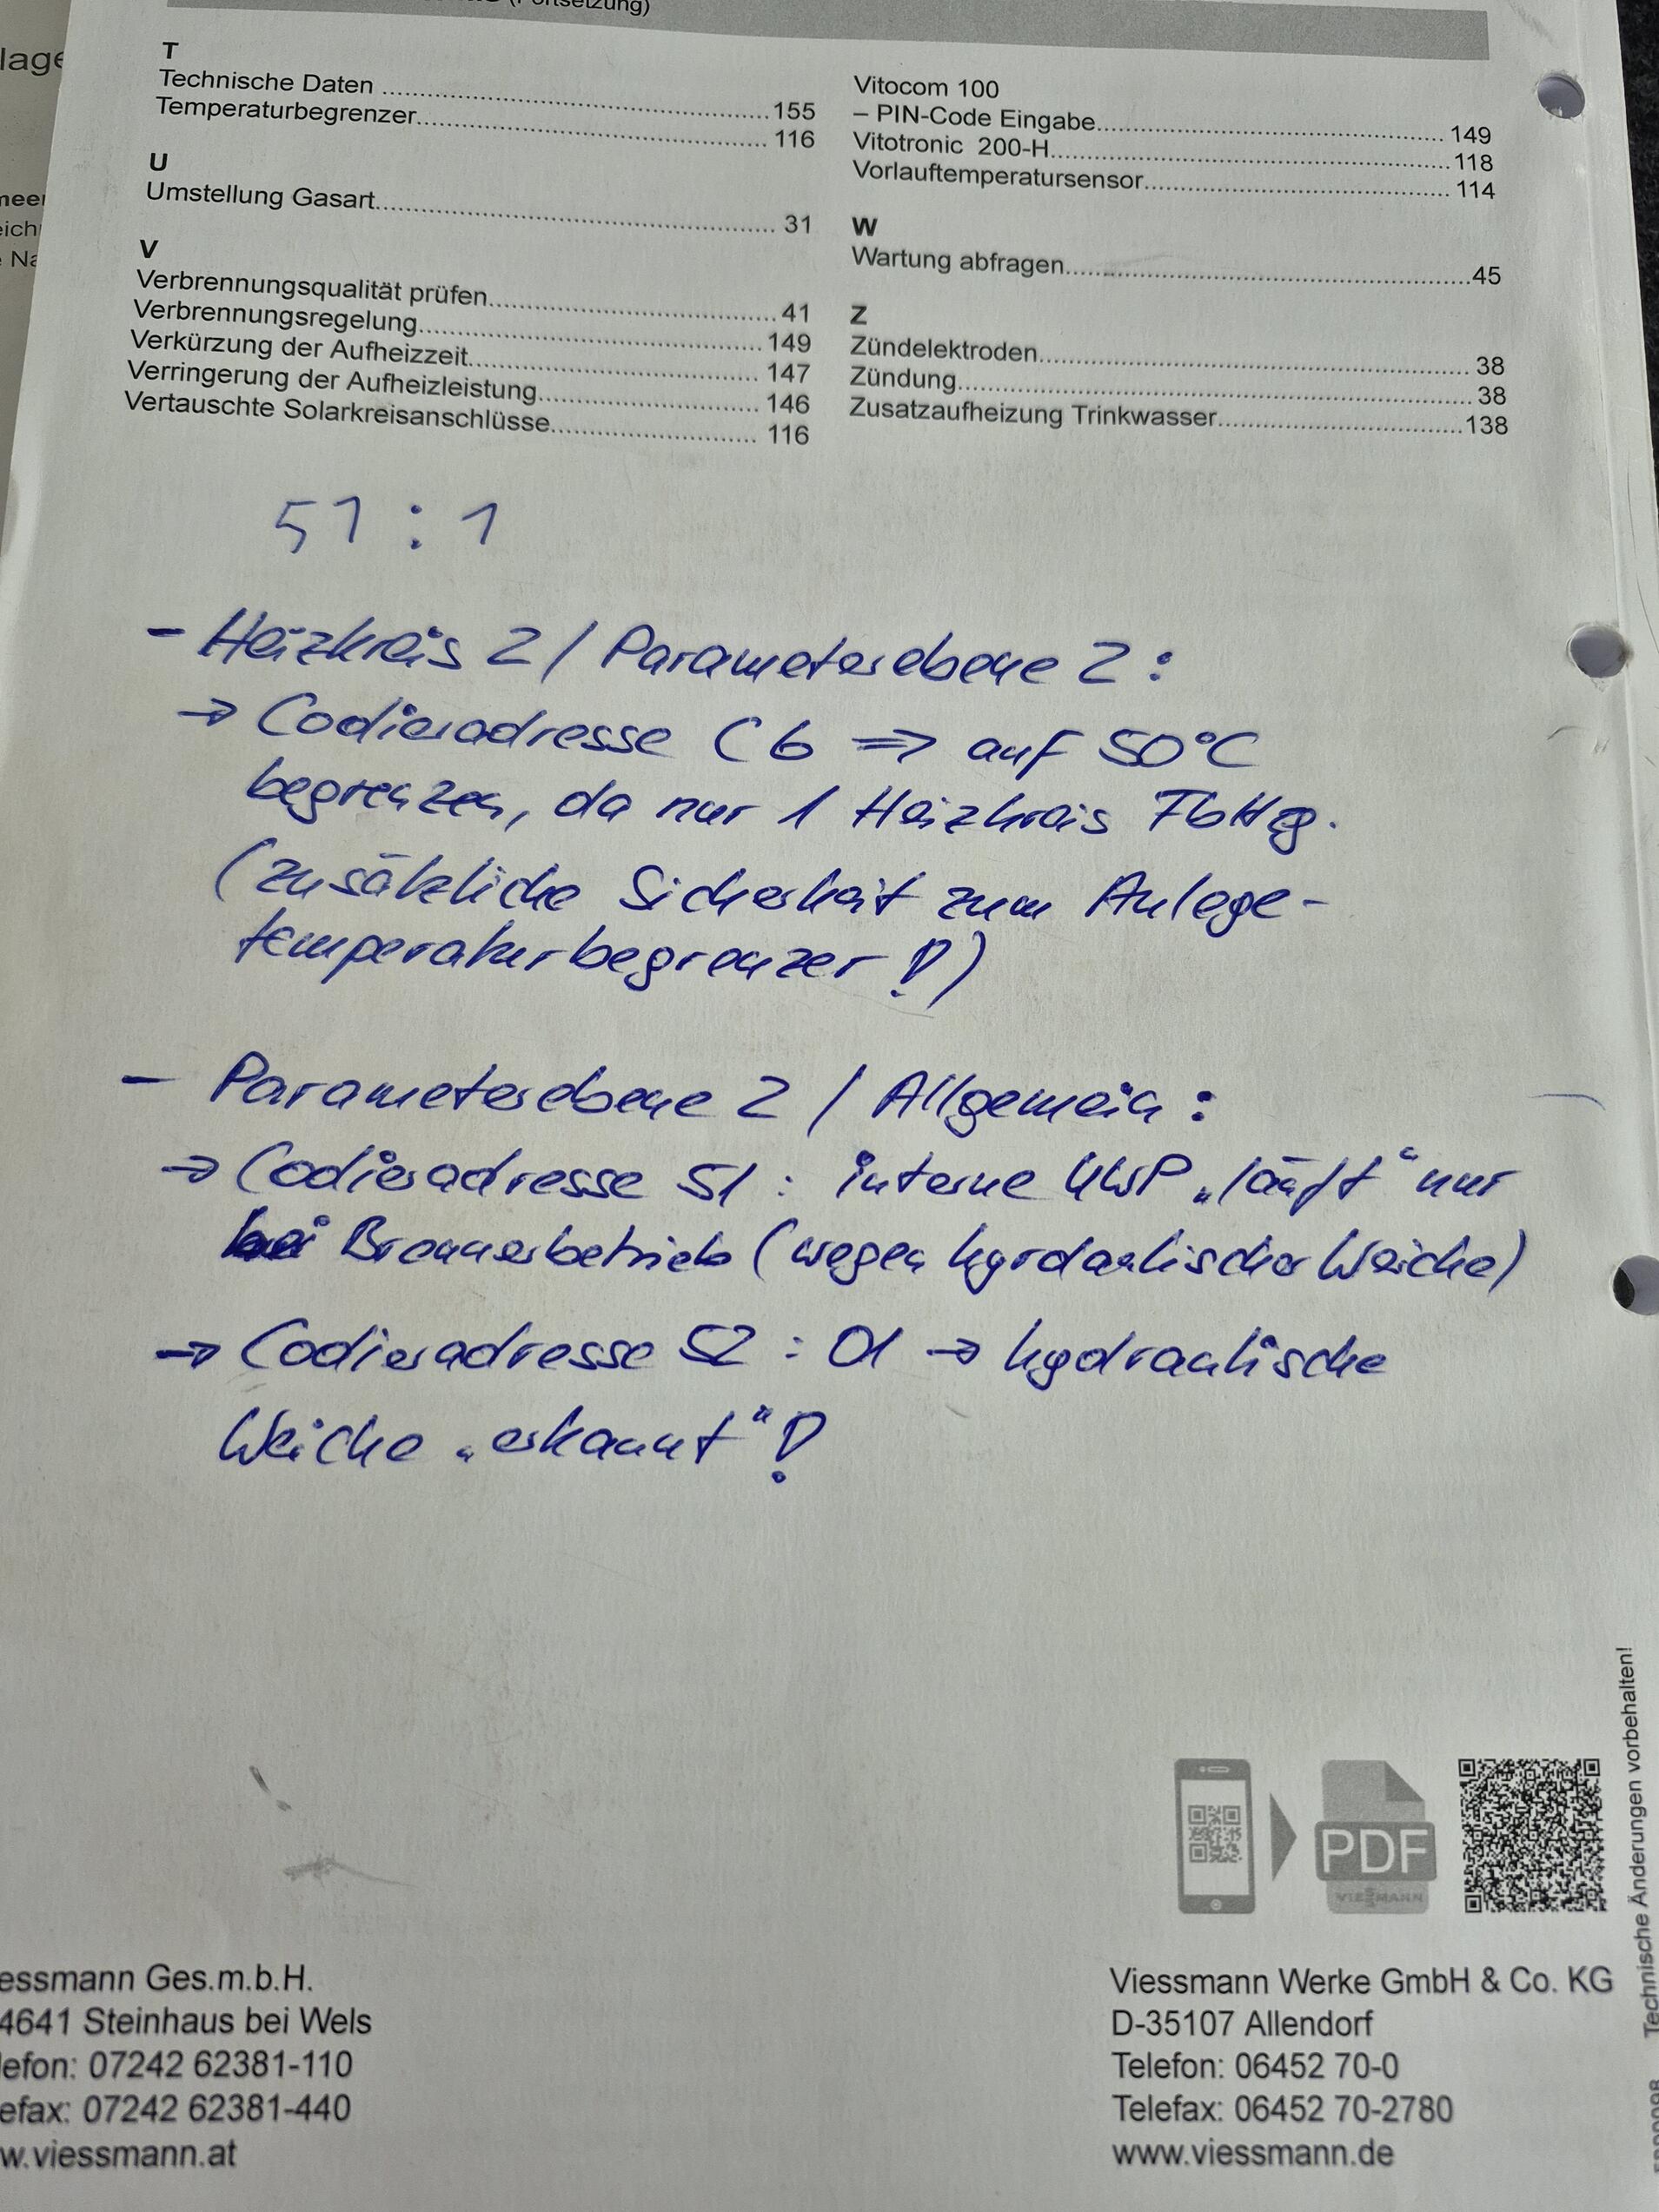 (Fortsetzung)
T
Technische Daten 155
Temperaturbegrenzer 116
U
Umstellung Gasart 31
V
Verbrennungsqualität prüfen 41
Verbrennungsregelung 149
Verkürzung der Aufheizzeit 147
Verringerung der Aufheizleistung 146
Vertauschte Solarkreisanschlüsse 116
Vitocom 100
– PIN-Code Eingabe 149
Vitotronic 200-H 118
Vorlauftemperatursensor 114
W
Wartung abfragen 45
Z
Zündelektroden 38
Zündung 38
Zusatzaufheizung Trinkwasser 138
51 : 1
- Heizkreis 2 / Parameterebene 2 :
→ Codieradresse C6 ⇒ auf 50°C
begrenzen, da nur 1 Heizkreis FbHzg.
(zusätzliche Sicherheit zum Anlege-
temperaturbegrenzer !)
- Parameterebene 2 / Allgemein :
→ Codieradresse 51 : interne UWP „läuft“ nur
bei Brennerbetrieb (wegen hyrdaulischer Weiche)
→ Codieradresse 52 : 01 → hydraulische
Weiche „erkannt“ !
PDF
VIESMANN
essmann Ges.m.b.H.
4641 Steinhaus bei Wels
lefon: 07242 62381-110
efax: 07242 62381-440
w.viessmann.at
Viessmann Werke GmbH & Co. KG
D-35107 Allendorf
Telefon: 06452 70-0
Telefax: 06452 70-2780
www.viessmann.de
Technische Änderungen vorbehalten!